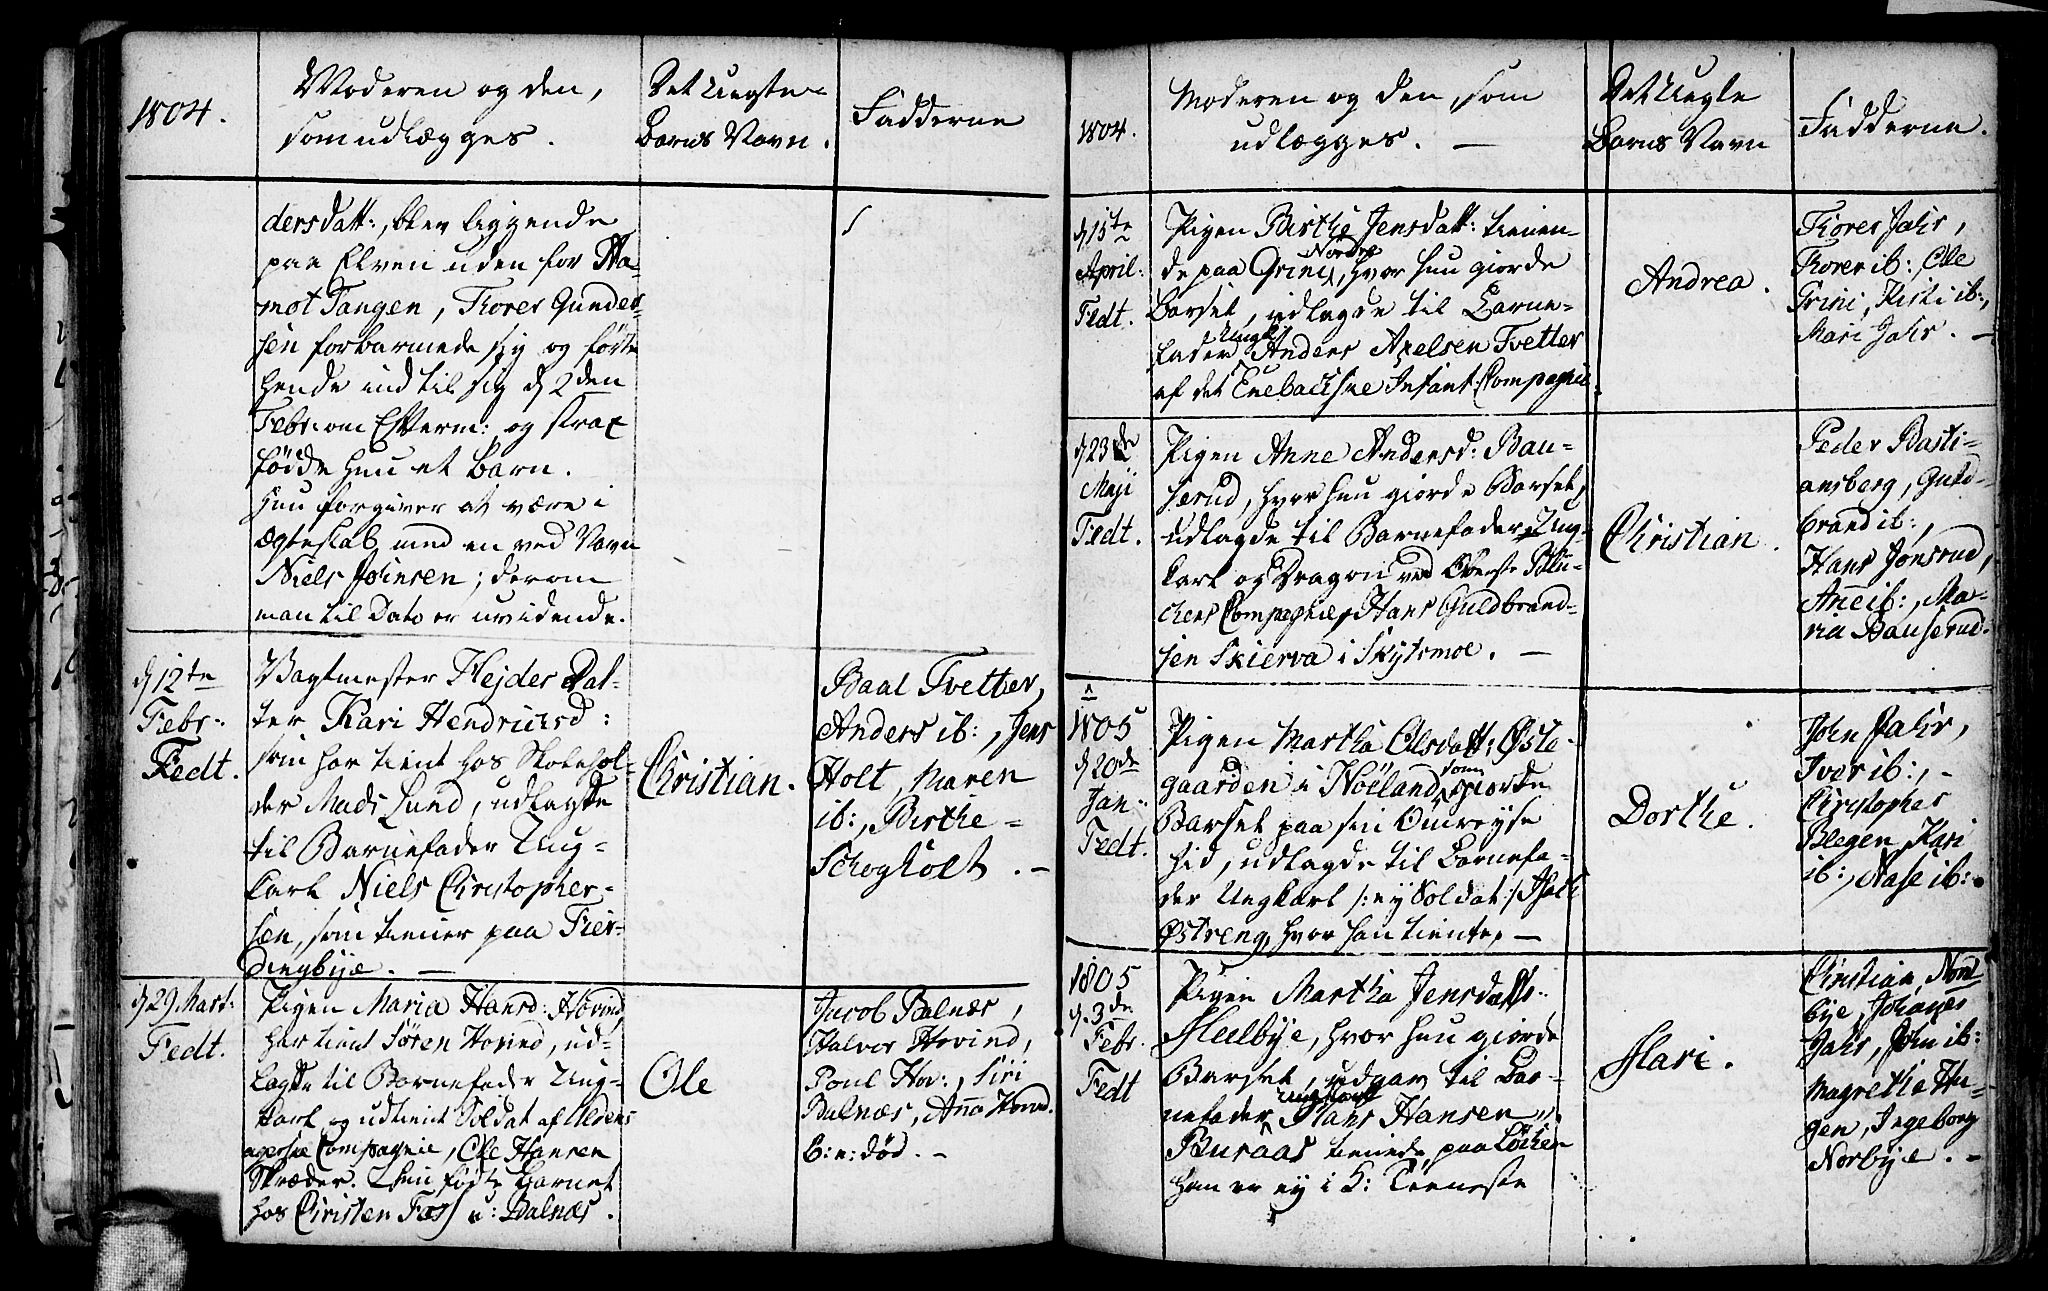 1804.
Moderen og den,
som udlægges.
Det Uægte
Barns Navn.
Fadderne
dersdatt:, blev liggende
paa Elven uden for
mot Tangen, Thorer Gunder-
sen forbarmede sig og førte
hende ind til sig d. 2den
Febr: om Efterm: og strax
fødde hun et Barn.
Hun forgiver at være i
Ægteskab med en ved Navn
Niels Johnsen; derom
man til Dato er uvidende.
d. 12te
Febr:
Fedt.
Vagtmester Hejders Dat-
ter Kari Hendricksd:
som har tient hos Skolehol-
der Mads Lund, udlagde
til Barnefader Ung-
karl Niels Christopher-
sen, som tiener paa Fier-
dingbye. —
Christian.
Baal Tvetter,
Anders ib:, Jens
Holt, Maren
ib:, Birthe
Schogholt. —
d. 29. Mart:
Fedt.
Pigen Maria Hansd: Hovind,
har tient Søren Hovind, ud-
lagde til Barnefader Ung-
karl og udtient Soldat af
Compagnie, Ole Hansen
Skræder. Hun fødte Barnet
hos Christen Foss u: Balnæs.
Ole
Jacob Balnæs,
Halvor Hovind,
Poul Hov:, Siri
Balnæs, Anna Hovind.
B: n: død. —
1804.
Moderen og den, som
udlægges. —
Det Uægte
Barns Navn
Fadderne.
d. 15te
April:
Fedt.
Pigen Birthe Jensdatt: tienen-
de paa Grini Nordre, hvor hun giorde
Barsel, udlagde til Barne-
fader Ungk: Anders Axelsen Tvetter
af det Enebachske Infant: Compagnie.
Andrea.
Thorer Jahr,
Thorer ib:, Ole
Grini, Kisti ib:,
Mari Jahr. —
d. 23de
Maji
Fedt.
Pigen Anne Andersd: Bau-
serud, hvor hun giorde Barsel,
udlagde til Barnefader Ung-
karl og Dragon ved Oberste
Compagnie, Hans Guldbrand-
sen Skierva i Skytsmoe. —
Christian.
Peder Basti-
ansberg, Guld-
brand ib:,
Hans Jonsrud,
Ane ib:, Ma-
ria Bauserud.
1805
d. 20de
Jan:
Fedt.
Pigen Martha Olsdatt: Øste-
gaarden i Høland, som giorde
Barsel paa sin Omreyse
hid, udlagde til Barnefa-
der Ungkarl /: ey Soldat :/
Østreng, hvor han tiente. —
Dorthe.
John Jahr,
Iver ib:, —
Christopher
Blegen, Kari
ib:, Aase ib:
1805
d. 3de
Febr:
Fedt
Pigen Martha Jensdatt:
Hellbye, hvor hun giorde
Barsel, udgav til Bar-
nefader Ungkarl Hans Hansen
Buraas tienede paa Løken
han er ey i K: Tieneste
Mari.
Christian Nord
bye, Johanes
Jahr, John ib:
Magrethe Hu-
gen, Ingeborg
Norbye. —